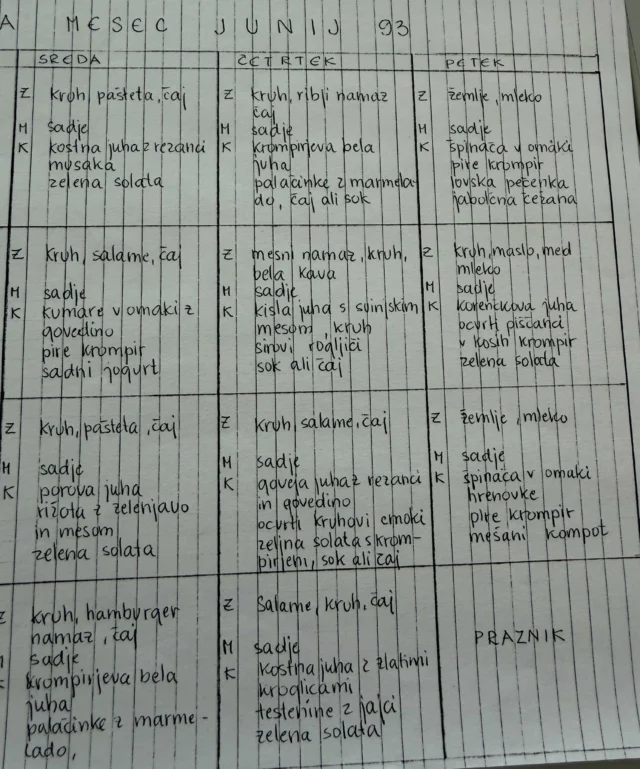 A MESEC JUNIJ 93
SREDA
Z kruh, pašteta, čaj
M sadje
K kostna juha z rezanci
musaka
zelena solata
ČETRTEK
Z kruh, ribji namaz
čaj
M sadje
K krompirjeva bela
juha
palačinke z marmela
do, čaj ali sok
PETEK
Z žemlje, mleko
M sadje
K špinača v omaki
pire krompir
lovska pečenka
jabolčna čežana
Z kruh, salame, čaj
M sadje
K kumare v omaki z
govedino
pire krompir
sadni jogurt
Z mesni namaz, kruh,
bela kava
M sadje
K kisla juha s svinjskim
mesom, kruh
sirovi rogljiči
sok ali čaj
Z kruh, maslo, med
mleko
M sadje
K korenčkova juha
ocvrti piščanci
v kosih krompir
zelena solata
Z kruh, pašteta, čaj
M sadje
K porova juha
rižota z zelenjavo
in mesom
zelena solata
Z kruh, salame, čaj
M sadje
K goveja juha z rezanci
in govedino
ocvrti kruhovi cmoki
zeljna solata s krom-
pirjem, sok ali čaj
Z žemlje, mleko
M sadje
K špinača v omaki
hrenovke
pire krompir
mešani kompot
Z kruh, hamburger
namaz, čaj
sadje
krompirjeva bela
juha
palačinke z marme-
lado,
Z Salame, kruh, čaj
M sadje
K kostna juha z zlatimi
kroglicami
testenine z jajci
zelena solata
PRAZNIK